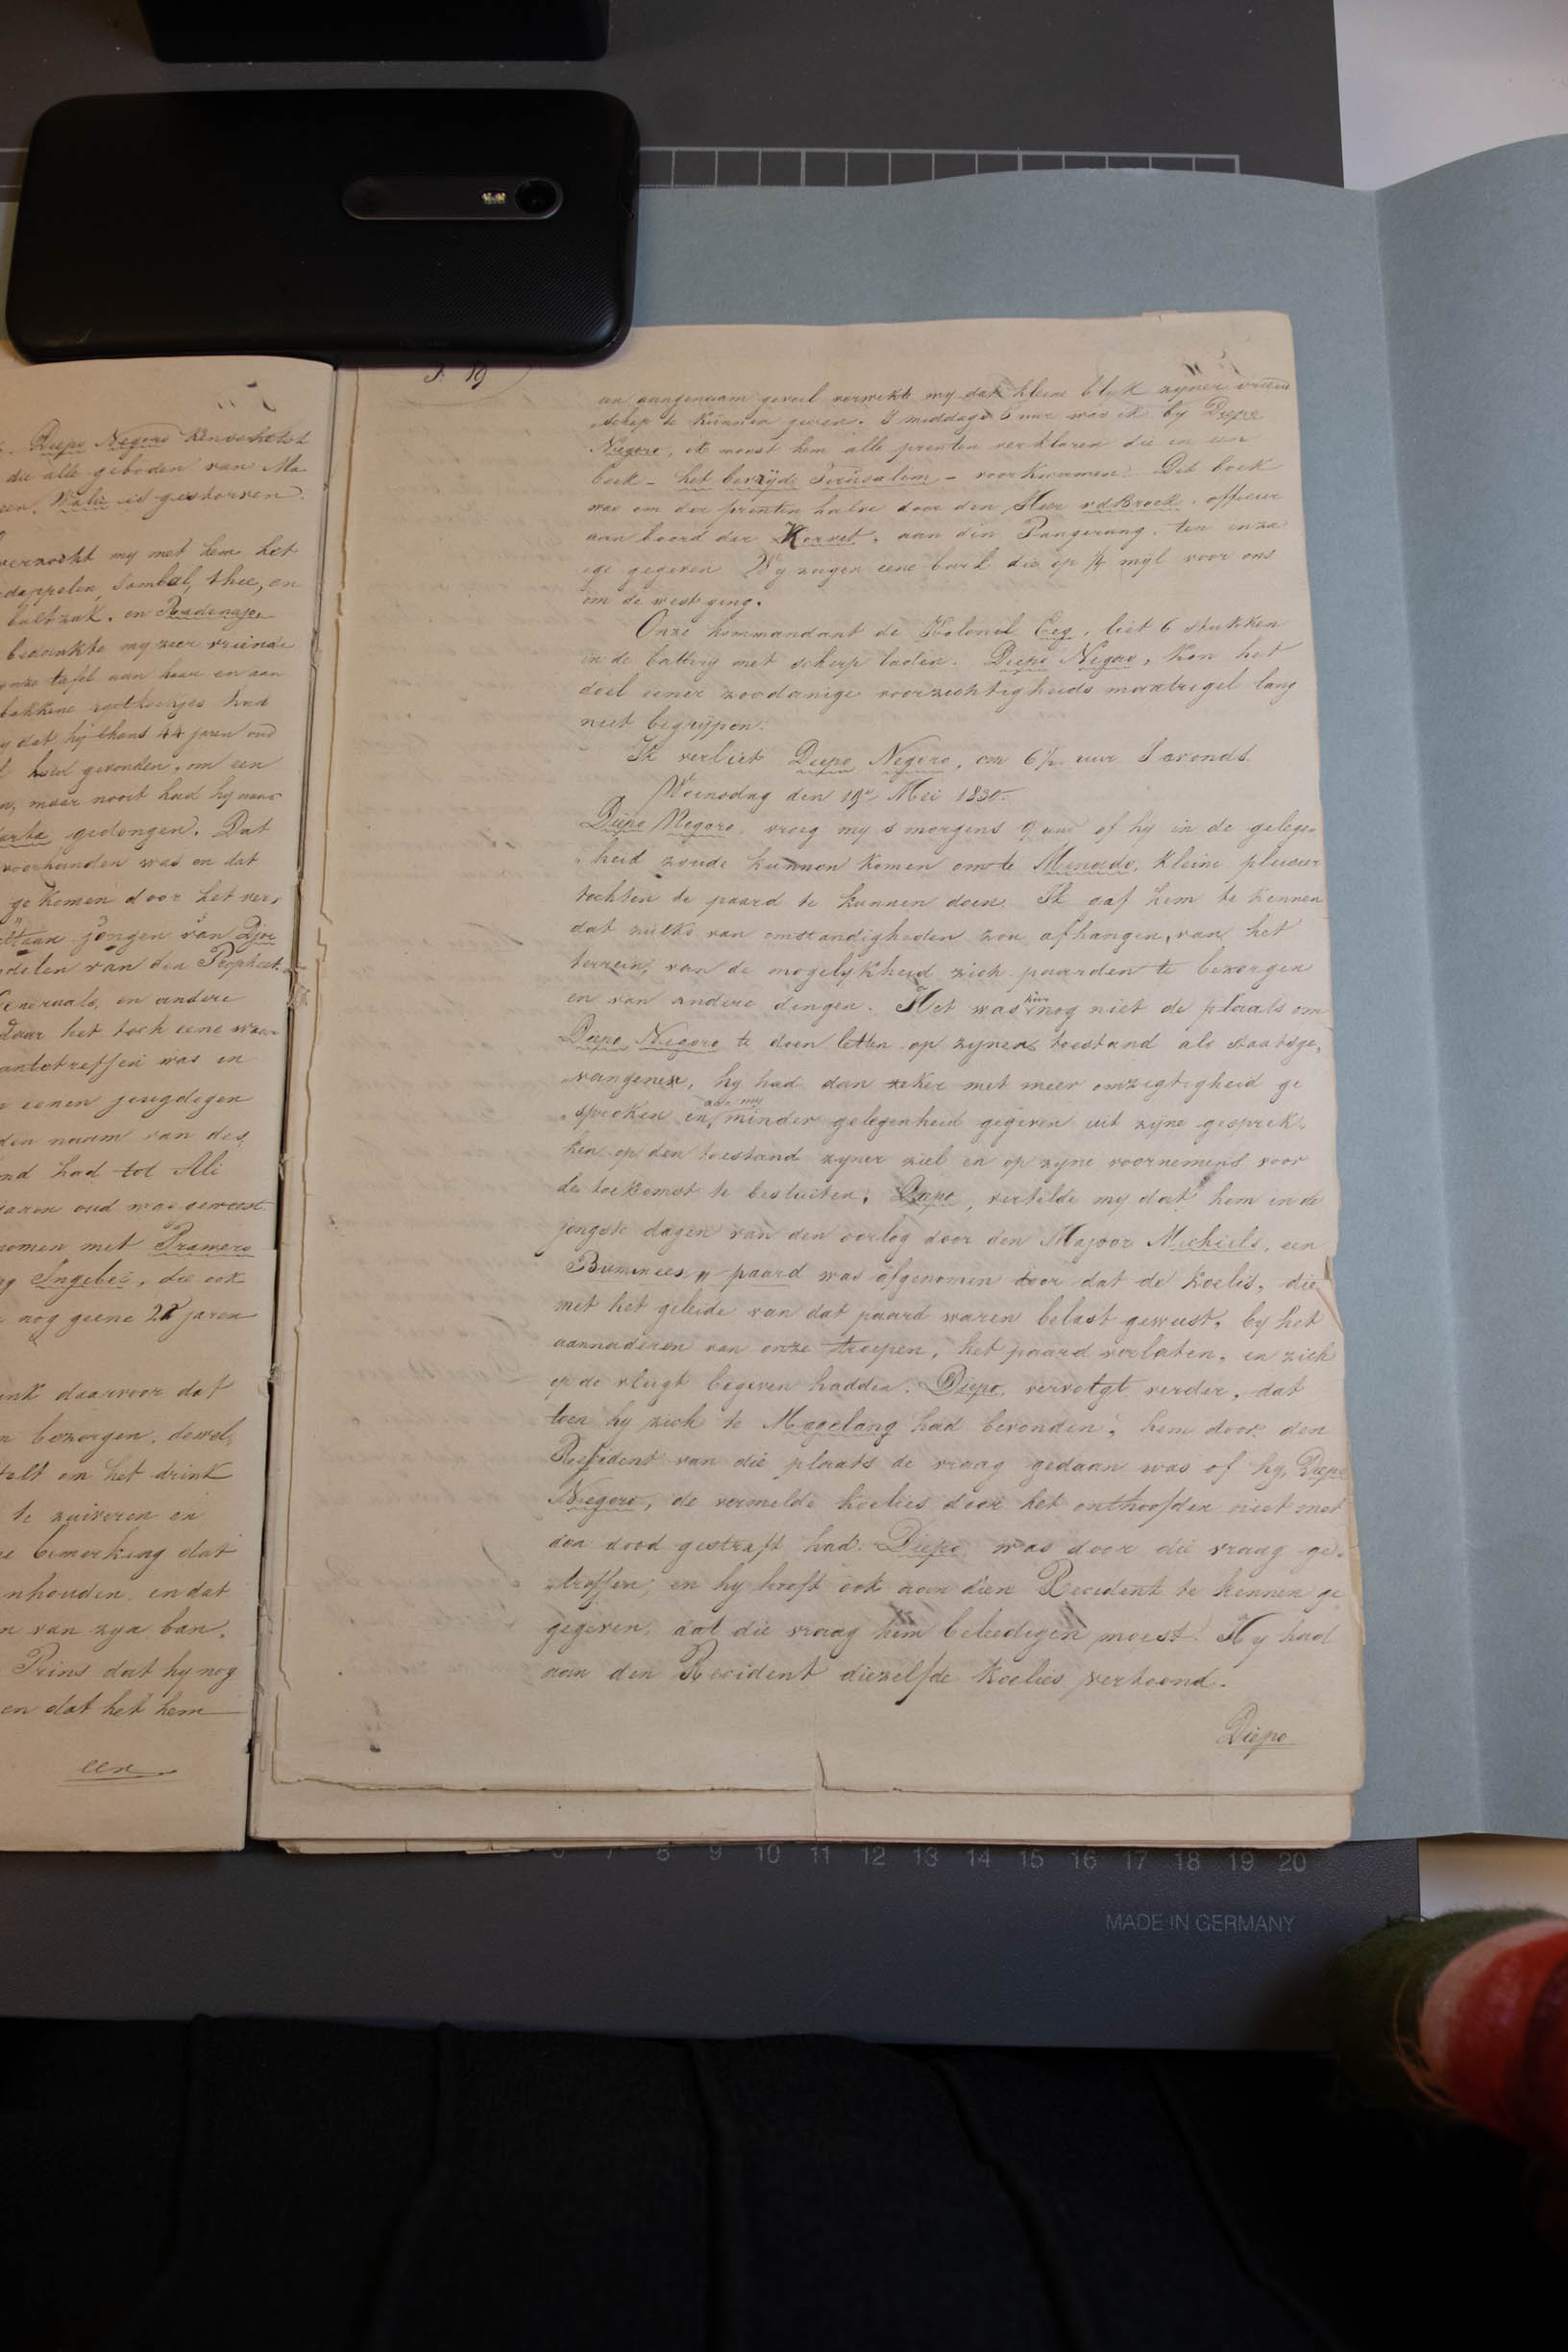 Diepo Negoro kenschetst
die alle geboden van Ma
een Walie is gestorven.
verzocht my met hem het
dappelen, Sambal, thee, en
bultzak. en Radenajo
bedankte my zeer vriende
onze tafel aan haar en aan
bakkene
y dat hy thans 44 jaren oud
had gevonden, om een
n, maar nooit had hy
karta gedongen. Dat
voorhanden was en dat
gekomen door het ver,
jongen van Djoc
delen van den Propheet.
Generaals, en andere
daar het toch eene waar
aantetreffen was en
n eenen jeugdigen
den naam van des
nd had tot Ali
jaren oud was geweest.
nomen met Prawero
g Ingebei, die ook
nog geene 22 jaren
ink daarvoor dat
n bezorgen, dewel,
telt om het drink
te zuiveren en
ne bemerking dat
nhouden, en dat
n van zyn ban.
Prins dat hy nog
en dat het hem
een
F. 19
een aangenaam gevoel verwekte my dat kleine blyk zyner vriend
schap te kunnen geven. S middags 5 uur was ik by Diepo
Negoro, ik moest hem alle prenten verklaren die in een
boek - het bevrijde Jerusalem - voorkwamen. Dit boek
was om der prenten halve door den Heer v d Broek, officier
aan boord der Korvet, aan den Pangerang, ten
ge gegeven Wy zagen eene bark die op ¼ myl voor ons
om de west ging.
Onze kommandant de Kolonel Eeg, liet 6 stukken
in de battery met scherp laden. Diepo Negoro, kon het
doel eener zoodanige voorzichtigheids maatregel lang
niet begrijpen.
Ik verliet Diepo Negoro, om 6½ uur S avonds.
Woensdag den 19e Mei 1830.
Diepo Negoro, vroeg my s morgens 9 uur of hy in de gelegen
heid zoude kunnen komen om te Menado, kleine pleizier
tochten te paard te kunnen doen. Ik gaf hem te kennen
dat zulks van omstandigheden zou afhangen, van het
terrein, van de mogelykheid zich paarden te bezorgen
en van andere dingen. Het was hier nog niet de plaats om
Diepo Negoro te doen letten op zynen toestand als staatsge,
vangene, hy had dan zeker met meer omzigtigheid ge
sproken en aan my minder gelegenheid gegeven uit zyne gesprek,
ken op den toestand zyner ziel en op zyne voornemens voor
de toekomst te besluiten. Diepo, vertelde my dat hem in de
jongste dagen van den oorlog door den Majoor Michiels, een
Bimanees paard was afgenomen door dat de koelis, die
met het geleide van dat paard waren belast geweest, by het
aannaderen van onze troepen, het paard verlaten, en zich
op de vlugt begeven hadden. Diepo, vervolgt verder, dat
toen hy zich te Magelang had bevonden, hem door den
Resident van die plaats de vraag gedaan was of hy, Diepo
Negoro, de vermelde koelies door het onthoofden niet met
den dood gestraft had. Diepo was door die vraag ge.
troffen, en hy heeft ook aan dien Resident te kennen ge
gegeven, dat die vraag hem beleedigen moest. Hy had
aan den Resident diezelfde koelies vertoond.
Diepo
6 7 8 9 10 11 12 13 14 15 16 17 18 19 20
MADE IN GERMANY